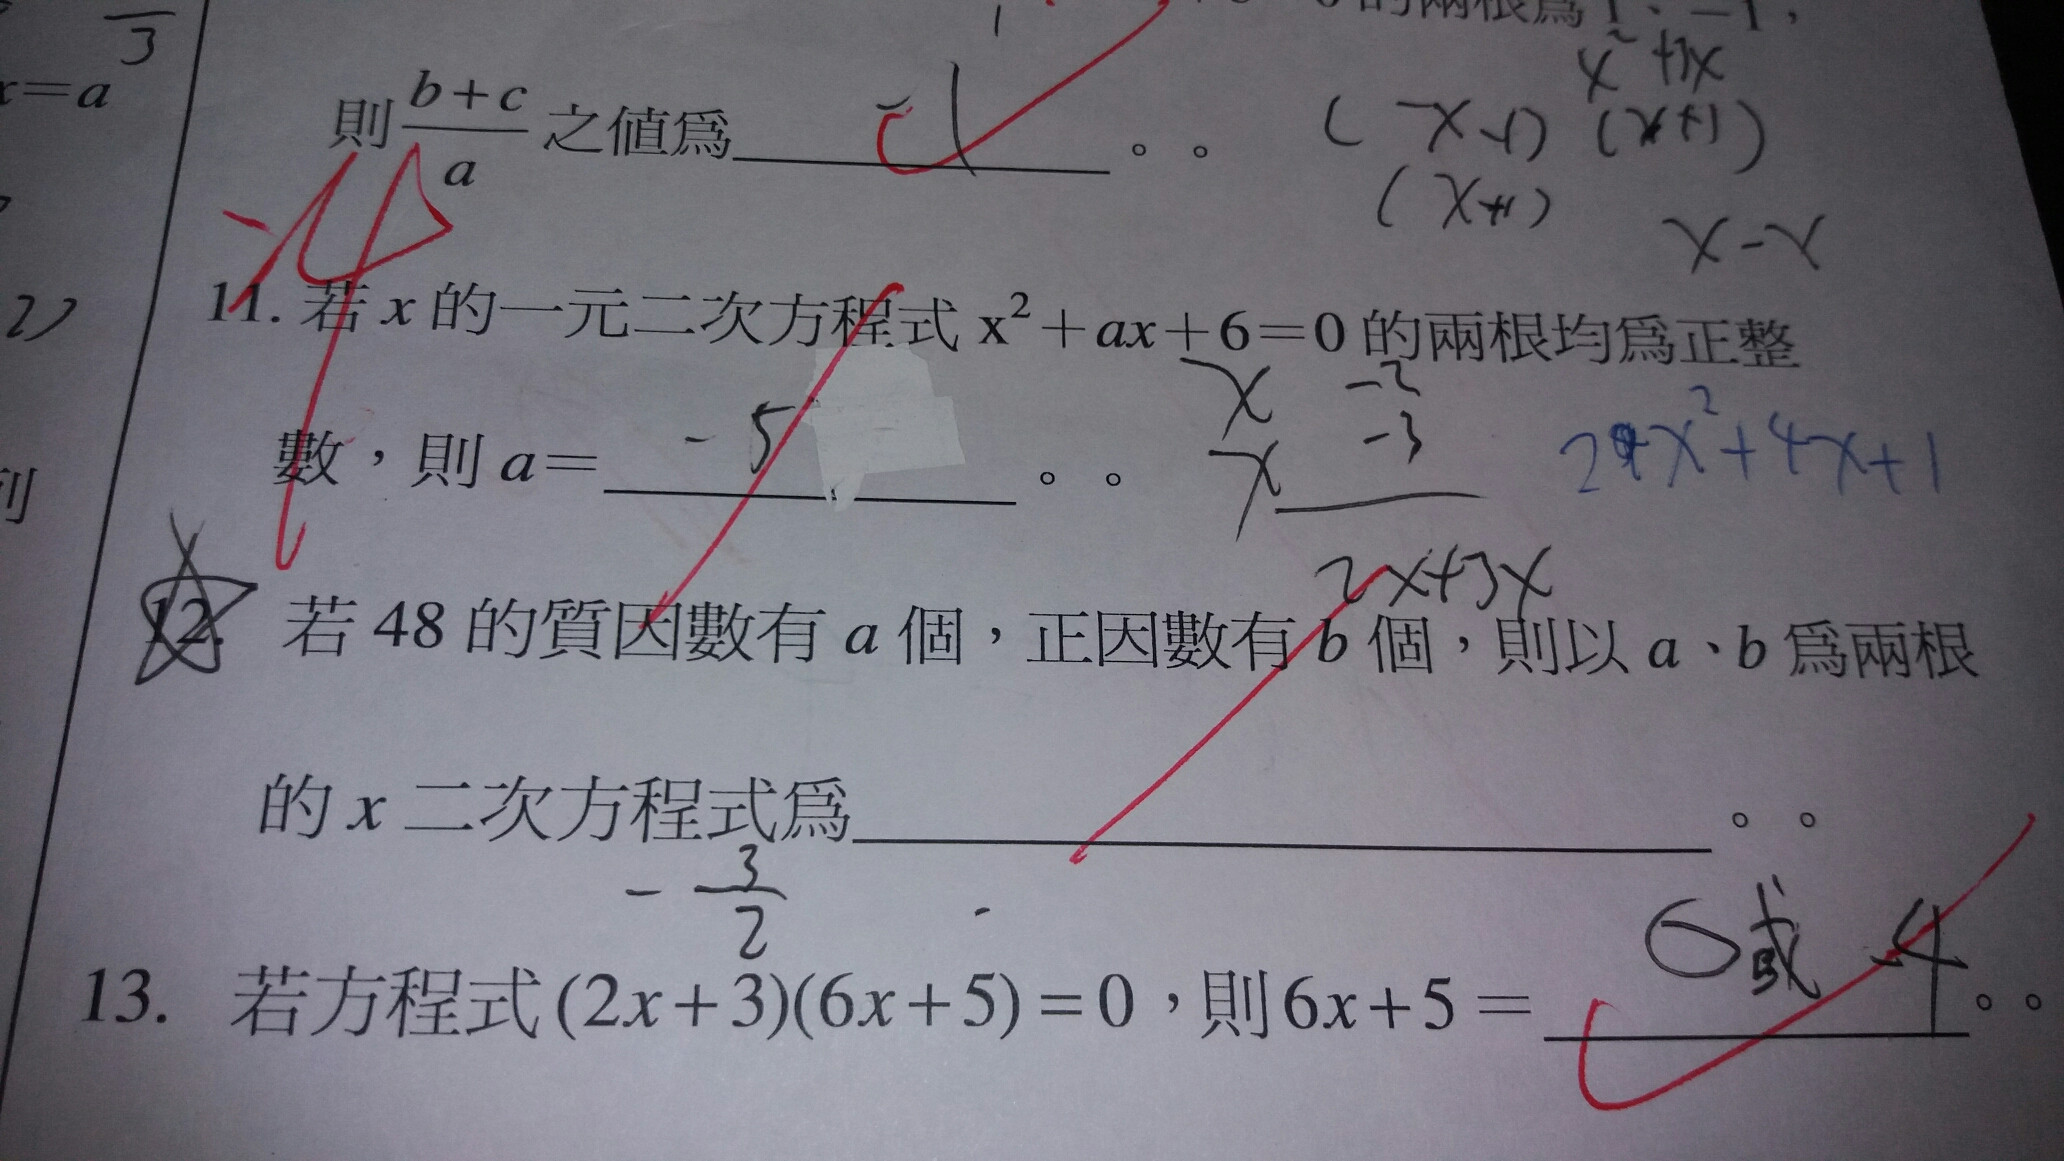 的兩根為 1、-1，
3
x=a
x²+1x
則 (b+c)/a 之值為 -1 。。
(x-1) (x+1)
(x+1)
x-x
2)
11. 若 x 的一元二次方程式 x²+ax+6=0 的兩根均為正整
x -2
數，則 a= -5 。。
x -3
2x²+4x+1
列
2x+3x
12. 若 48 的質因數有 a 個，正因數有 b 個，則以 a、b 為兩根
的 x 二次方程式為 。。
-3/2
13. 若方程式 (2x+3)(6x+5)=0，則 6x+5= 6或-4 。。